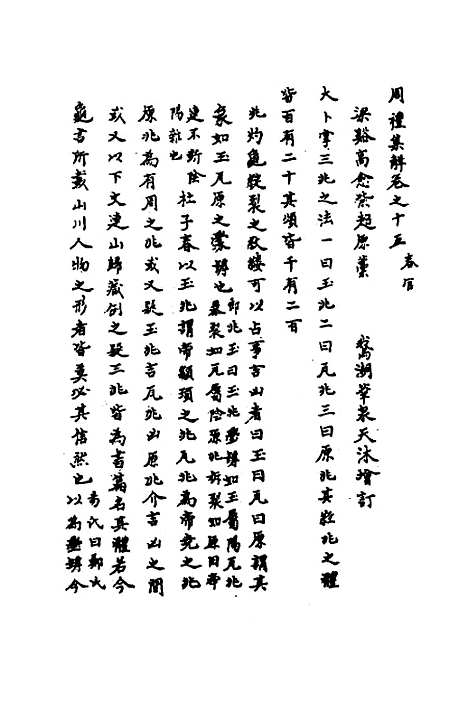 周禮集解卷之十五 春官
梁谿高愈紫超原藁 鵞湖華泉天沐增訂
大卜掌三兆之法一曰玉兆二曰瓦兆三曰原兆其經兆之體
皆百有二十其頌皆千有二百
兆灼龜發裂之紋縷可以占事吉凶者曰玉曰瓦曰原謂其
象如玉瓦原之璺罅也 鄭
兆玉曰玉兆璺罅如玉屬陽瓦兆
暴裂如瓦屬陰原兆坼裂如原田帝
連不斷陰
陽雜也 杜子春以玉兆謂帝顓頊之兆瓦兆為帝堯之兆
原兆為有周之兆或又疑玉兆吉瓦兆凶原兆介吉凶之間
或又以下文連山歸藏例之疑三兆皆為書篇名其體若今
龜書所載山川人物之形者皆莫必其信然也
氏曰鄭氏
以為璺罅今